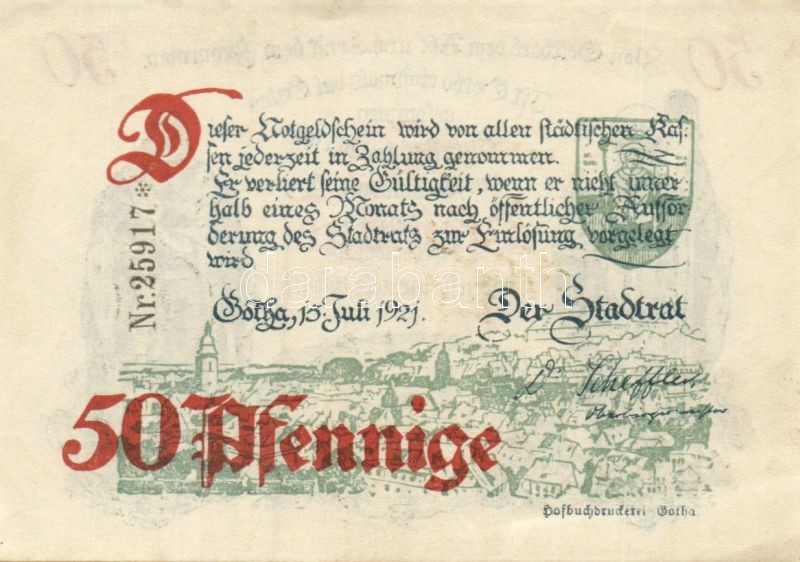 Dieser Notgeldschein wird von allen städtischen Kas-
sen jederzeit in Zahlung genommen.
Er verliert seine Gültigkeit, wenn er nicht inner-
halb eines Monats nach öffentlicher Auffor-
derung des Stadtrats zur Einlösung vorgelegt
wird.
Nr. 25917 *
Gotha, 15. Juli 1921.
Der Stadtrat
darabanth
Dr Scheffler
Oberbürgermeister
50 Pfennige
Hofbuchdruckerei Gotha